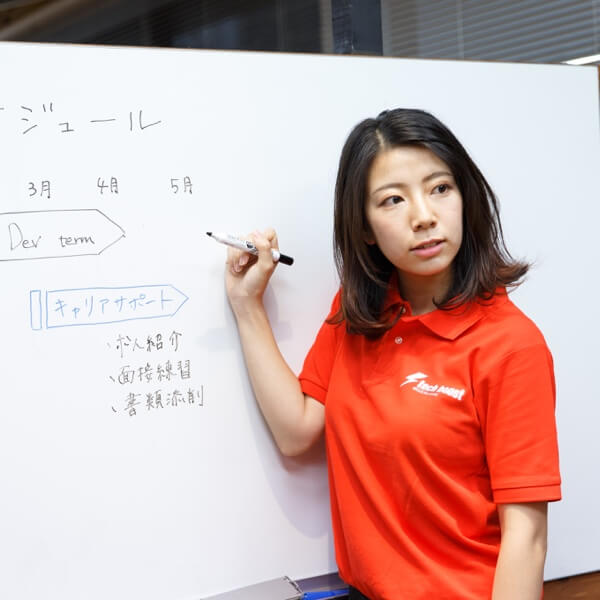 ジュール
3月 4月 5月
Dev term
キャリアサポート
、求人紹介
、面接練習
、書類添削
tech